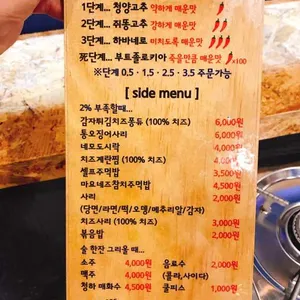 1단계... 청양고추 약하게 매운맛
2단계... 쥐똥고추 강하게 매운맛
3단계... 하바네로 미치도록 매운맛
死단계... 부트졸로키아 죽음만큼 매운맛 × 100
※단계 0.5 · 1.5 · 2.5 · 3.5 주문가능
[ side menu ]
2% 부족할때...
감자튀김치즈퐁듀 (100% 치즈) 6,000원
통오징어사리 5,000원
네모도시락 4,000원
치즈계란찜 (100% 치즈) 4,000원
셀프주먹밥 3,500원
마요네즈참치주먹밥 4,500원
사리 2,000원
(당면/라면/떡/오뎅/메추리알/감자)
치즈사리 (100% 치즈) 3,000원
볶음밥 2,000원
술 한잔 그리울 때...
소주 4,000원 음료수 2,000원
맥주 4,000원 (콜라,사이다)
청하 매화수 4,500원 쿨피스 1,000원